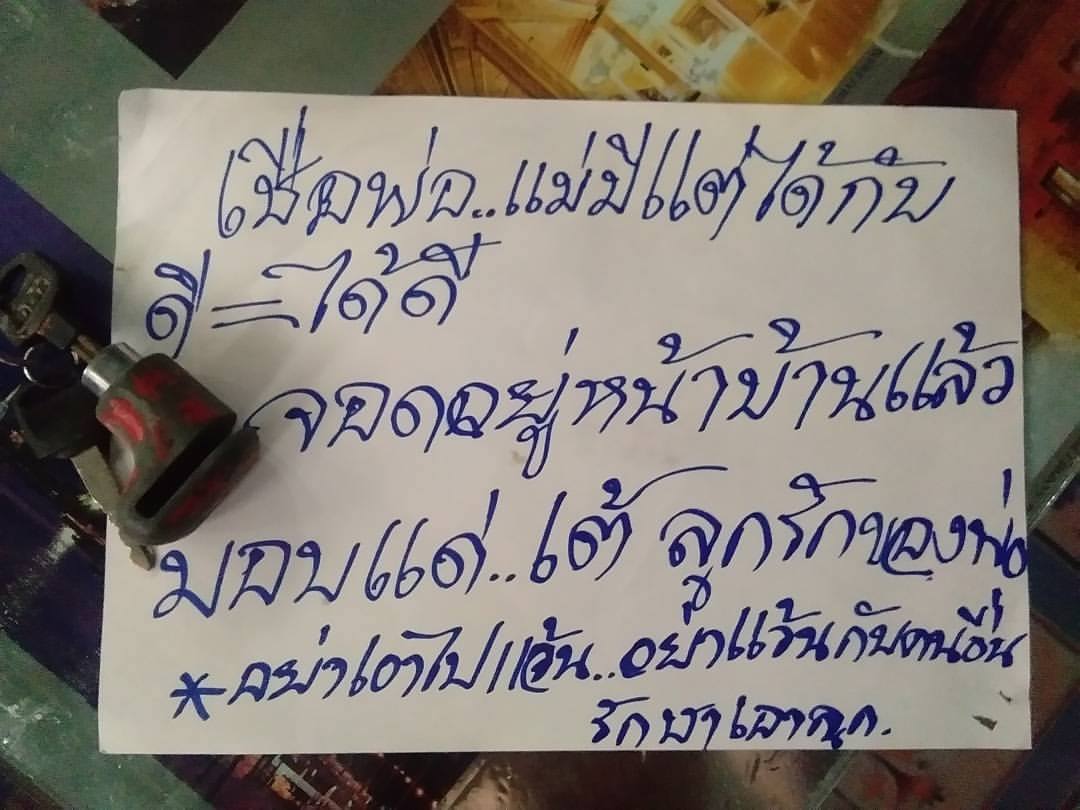 เชื่อพ่อ..แม่มีแต่ได้กับ
ดี=ได้ดี
จอดอยู่หน้าบ้านแล้ว
มอบแด่..เต้ ลูกรักของพ่อ
*อย่าเอาไปแว้น..อย่าแว้นกับคนอื่น
รักษาเอาลูก.